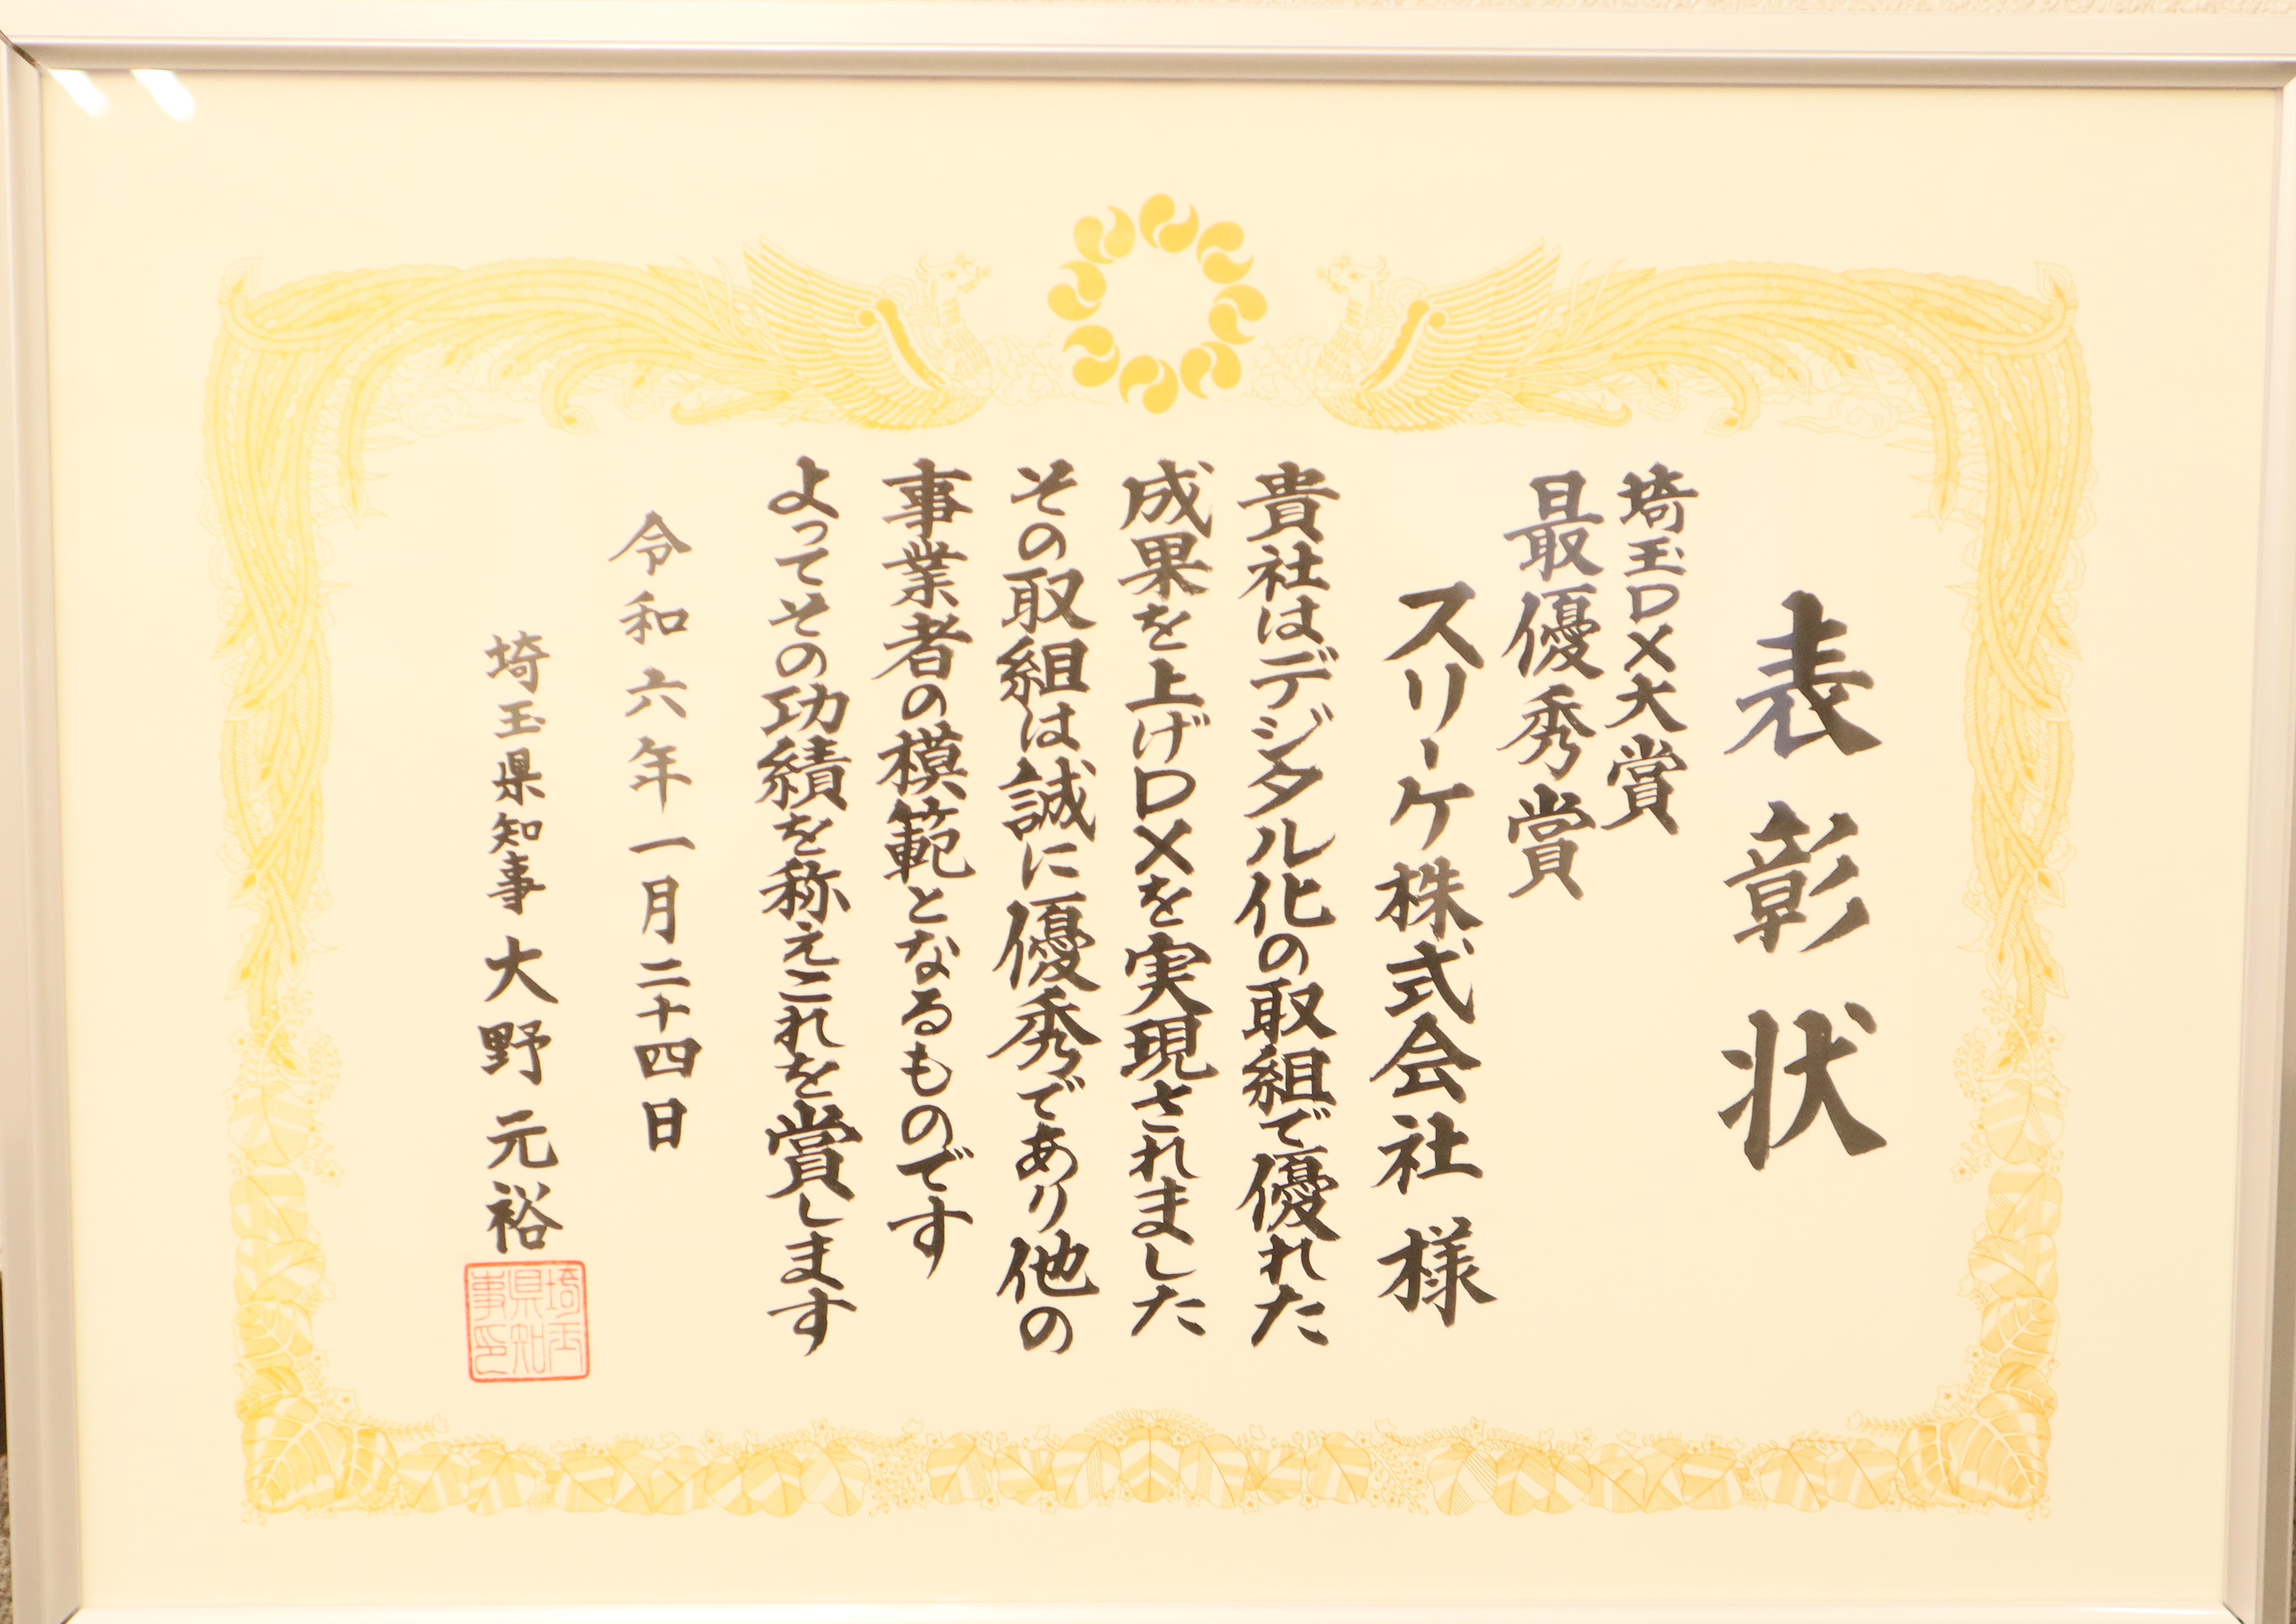 表彰状
埼玉DX大賞
最優秀賞
スリーケ株式会社 様
貴社はデジタル化の取組で優れた
成果を上げDXを実現されました
その取組は誠に優秀であり他の
事業者の模範となるものです
よってその功績を称えこれを賞します
令和六年一月二十四日
埼玉県知事 大野元裕
埼玉
県知
事印